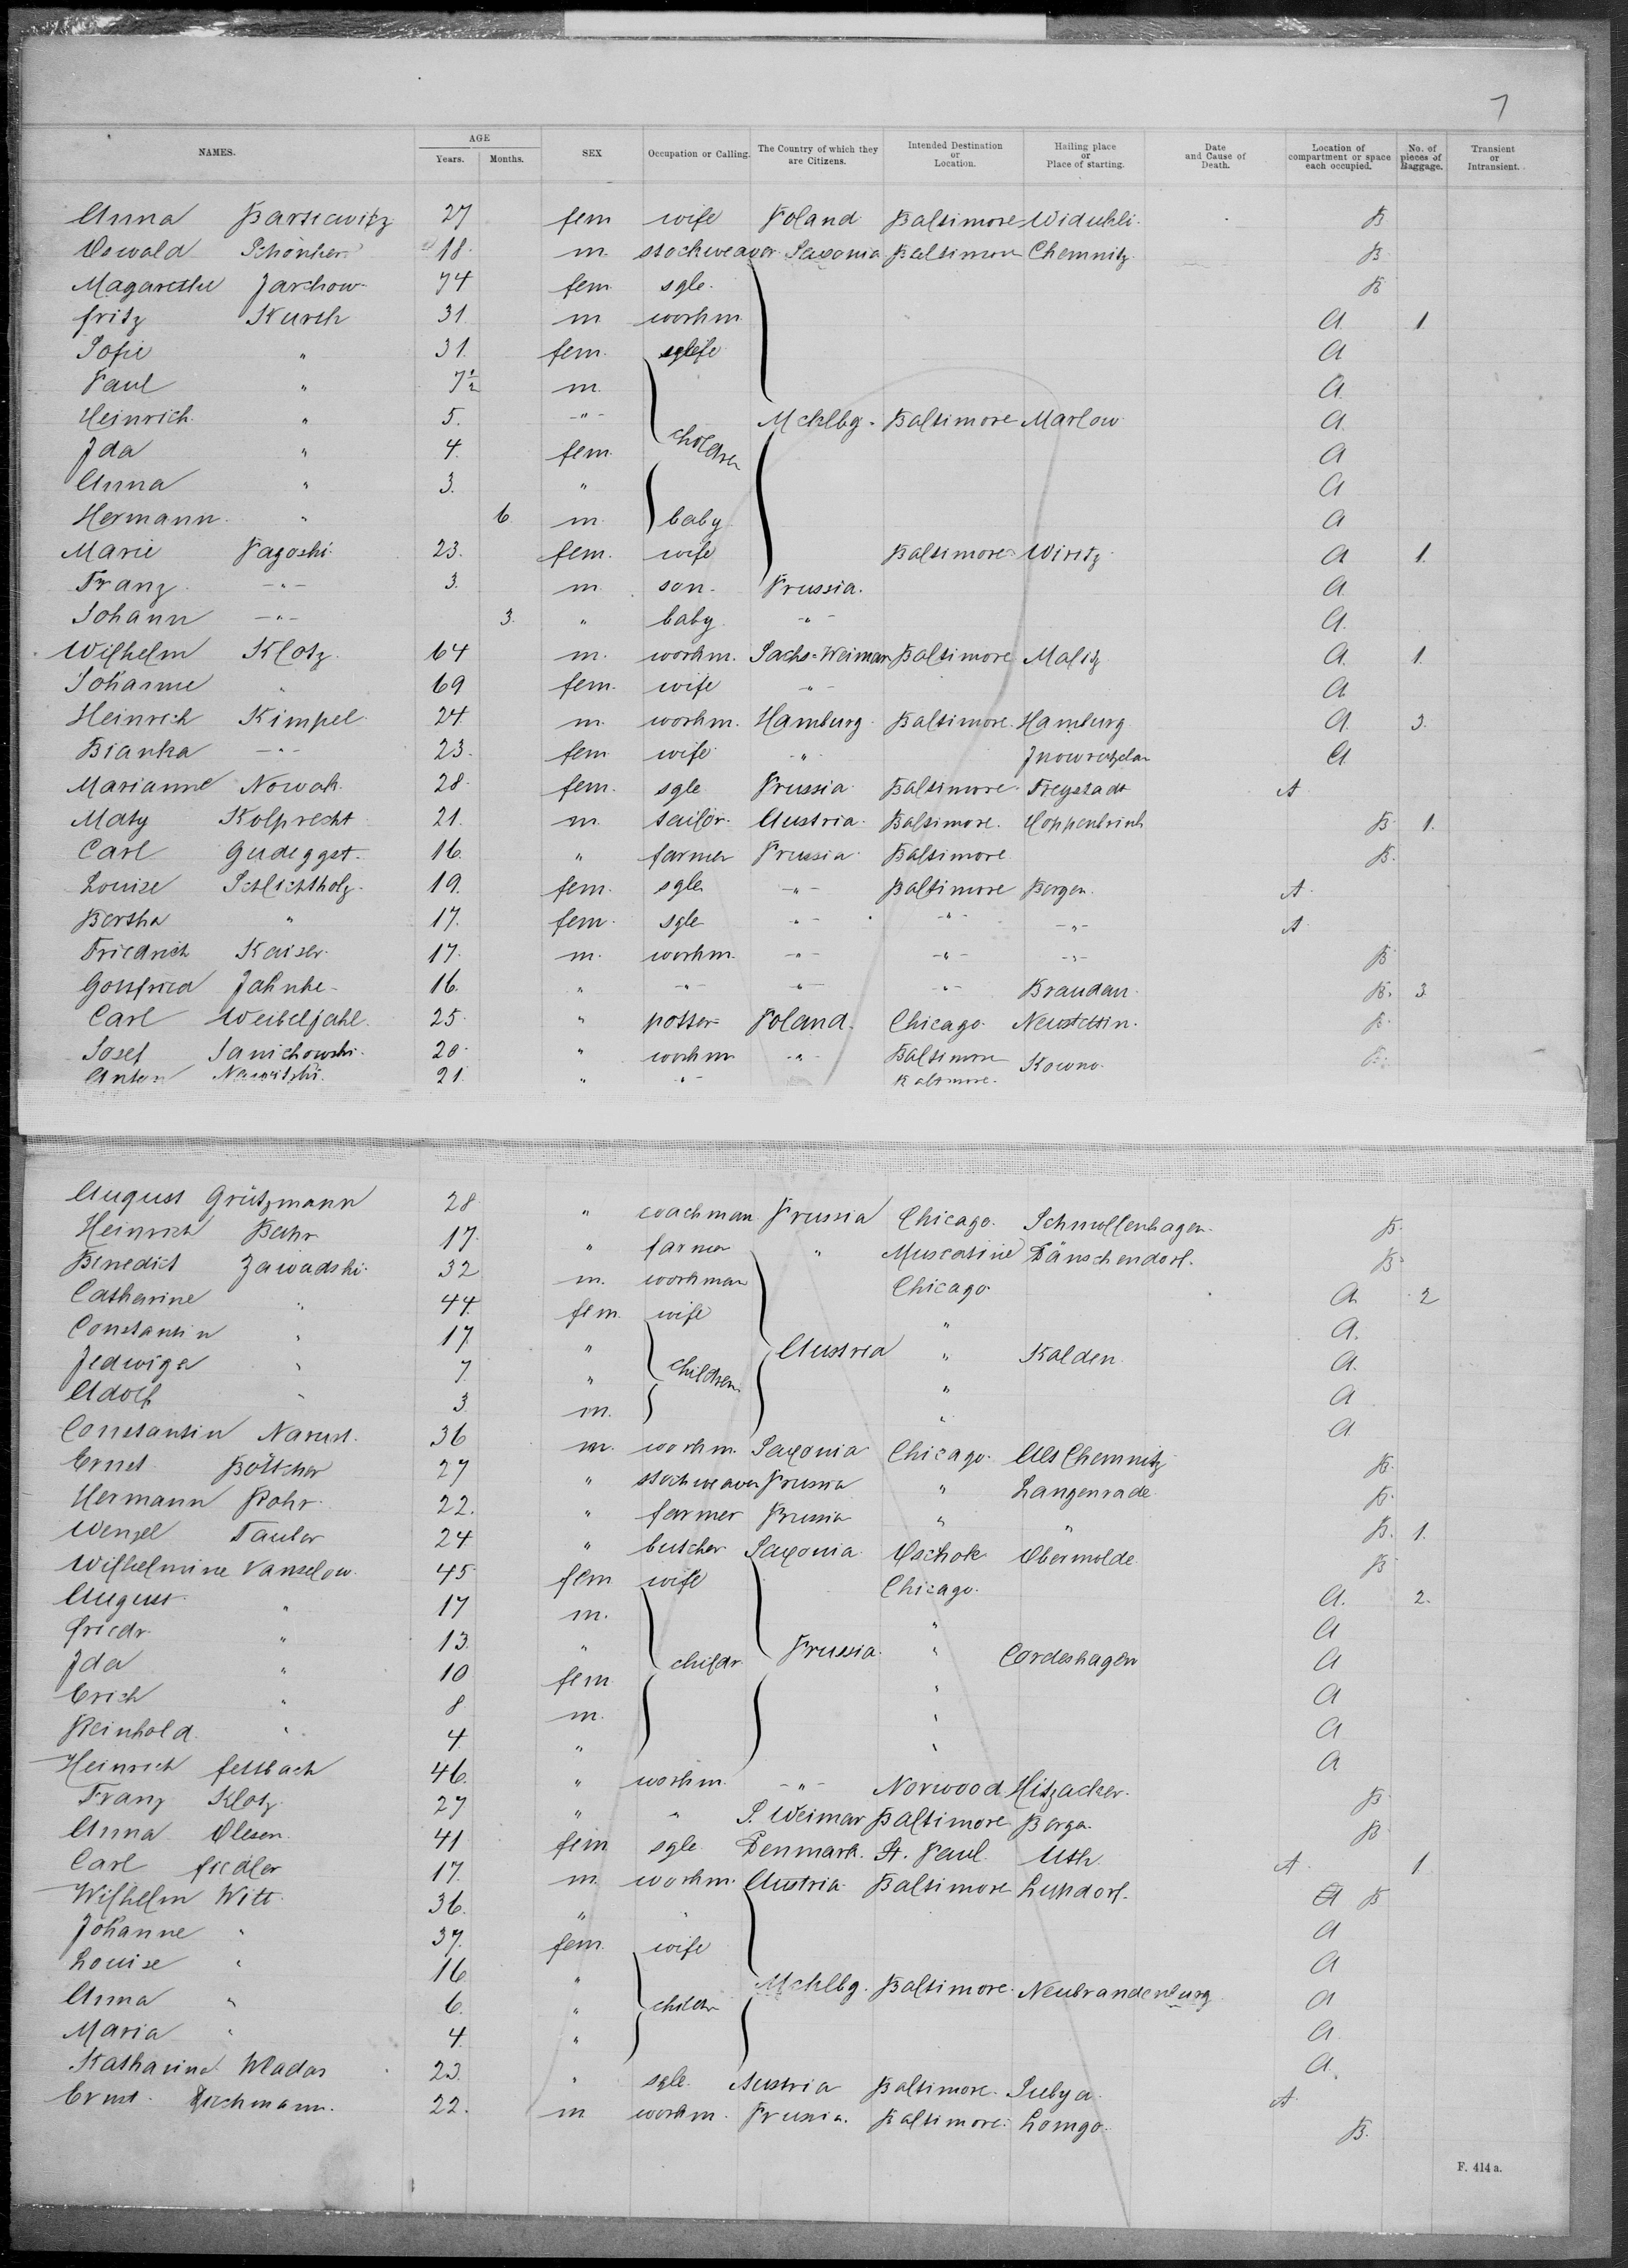 7
NAMES. AGE Years. Months. SEX Occupation or Calling. The Country of which they are Citizens. Intended Destination or Location. Hailing place or Place of starting. Date and Cause of Death. Location of compartment or space each occupied. No. of pieces of Baggage. Transient or Intransient.
Anna Barsiewitz 27 fem wife Poland Baltimore Widukli. B
Oswald Schönherr 18 m. stockweaver Saxonia Baltimore Chemnitz B
Magarethe Jarchow 74 fem sgle. B
fritz Kursch 31 m workm A 1
Sofie " 31. fem. A
Paul " 7½ m. A
Heinrich " 5. -"- Mcklbg. Baltimore Marlow A
Jda " 4. fem children A
Anna " 3. " A
Hermann " 6 m. baby A
Marie Pagoski 23. fem. wife Baltimore Wiritz A 1.
Franz -"- 3. m son Prussia. A
Johann -"- 3. " baby -"- A.
Wilhelm Klotz 64 m. workm. Sachs-Weimar Baltimore Malitz A. 1.
Johanne " 69 fem. wife -"- A
Heinrich Kimpel 24. m. workm. Hamburg Baltimore Hamburg A. 3.
Bianka -"- 23. fem wife -"- A
Marianne Nowak 28 fem. sgle Prussia Baltimore Freystadt A
Maty Kolprecht 21. m. tailor. Austria Baltimore. Hoppenbrink B. 1.
Carl Gudeggst. 16. " farmer Prussia Baltimore B.
Louise Schlichtholz 19. fem. sgle -"- Baltimore Bergen. A
Bertha " 17. fem. sgle -"- -"- -"- A
Friedrich Kaiser 17. m. workm. -"- -"- -"- B
Gottfried Jahnke 16. " -"- -"- -"- Braudan. B. 3
Carl Weibeljahl. 25. " potter Poland. Chicago. Neustettin. B.
Josef Janichowski. 20. " workm -"- Baltimore Kowno B.
Anton 21. " -"- Baltimore.
August Grützmann 28. " coachman Prussia Chicago. Schmollenhagen. B.
Heinrich Bahr 17. " farmer " Muscatine Dänschendorf. B.
Benedict Zawadski 32 m. workman Chicago A 2
Catharine " 44. fem. wife " A.
Constantin " 17. " Austria " Kalden A.
Jedwiga " 7. " children " A
Adolf " 3 m. " A
Constantin Narust. 36 m. workm. Saxonia Chicago. Alt Chemnitz B.
Ernst Böttcher 27 " stockweaver Prussia " Langenrade B.
Hermann Rohr 22. " farmer Prussia " " B. 1.
Wenzel Tauber 24 " butcher Saxonia Oschok Obermolde B
Wilhelmine Vanselow. 45 fem wife Chicago. A. 2.
August " 17 m. " A
friedr. " 13. " childr. Prussia. " Cordeshagen A
Jda " 10 fem " A
Erich " 8 m. " A
Reinhold " 4. " " A
Heinrich fettbach 46. " workm. -"- Norwood Hitzacker. B
Franz Klotz 27 " " S. Weimar Baltimore Berga B
Anna Olesen. 41 fem sgle. Denmark. St. Paul. Uth. A. 1
Carl fiedler 17. m workm. Austria Baltimore Lundorf. B
Wilhelm Witt. 36. " " A
Johanne " 37. fem. wife A
Louise " 16 " Mcklbg. Baltimore. Neubrandenburg A
Anna " 6. " childr A.
Maria " 4. " A.
Katharina Wladar 23. " sgle. Austria Baltimore. Subya. A
Ernst Dickmann. 22. m workm. Prussia. Baltimore. Lomgo. B.
F. 414 a.